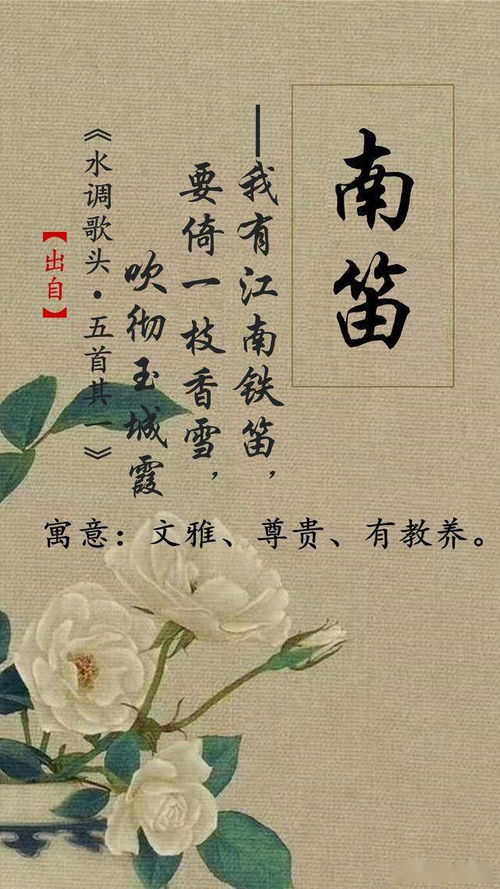 南笛
——我有江南铁笛，
要倚一枝香雪，
吹彻玉城霞
《水调歌头·五首其一》
【出自】
寓意：文雅、尊贵、有教养。